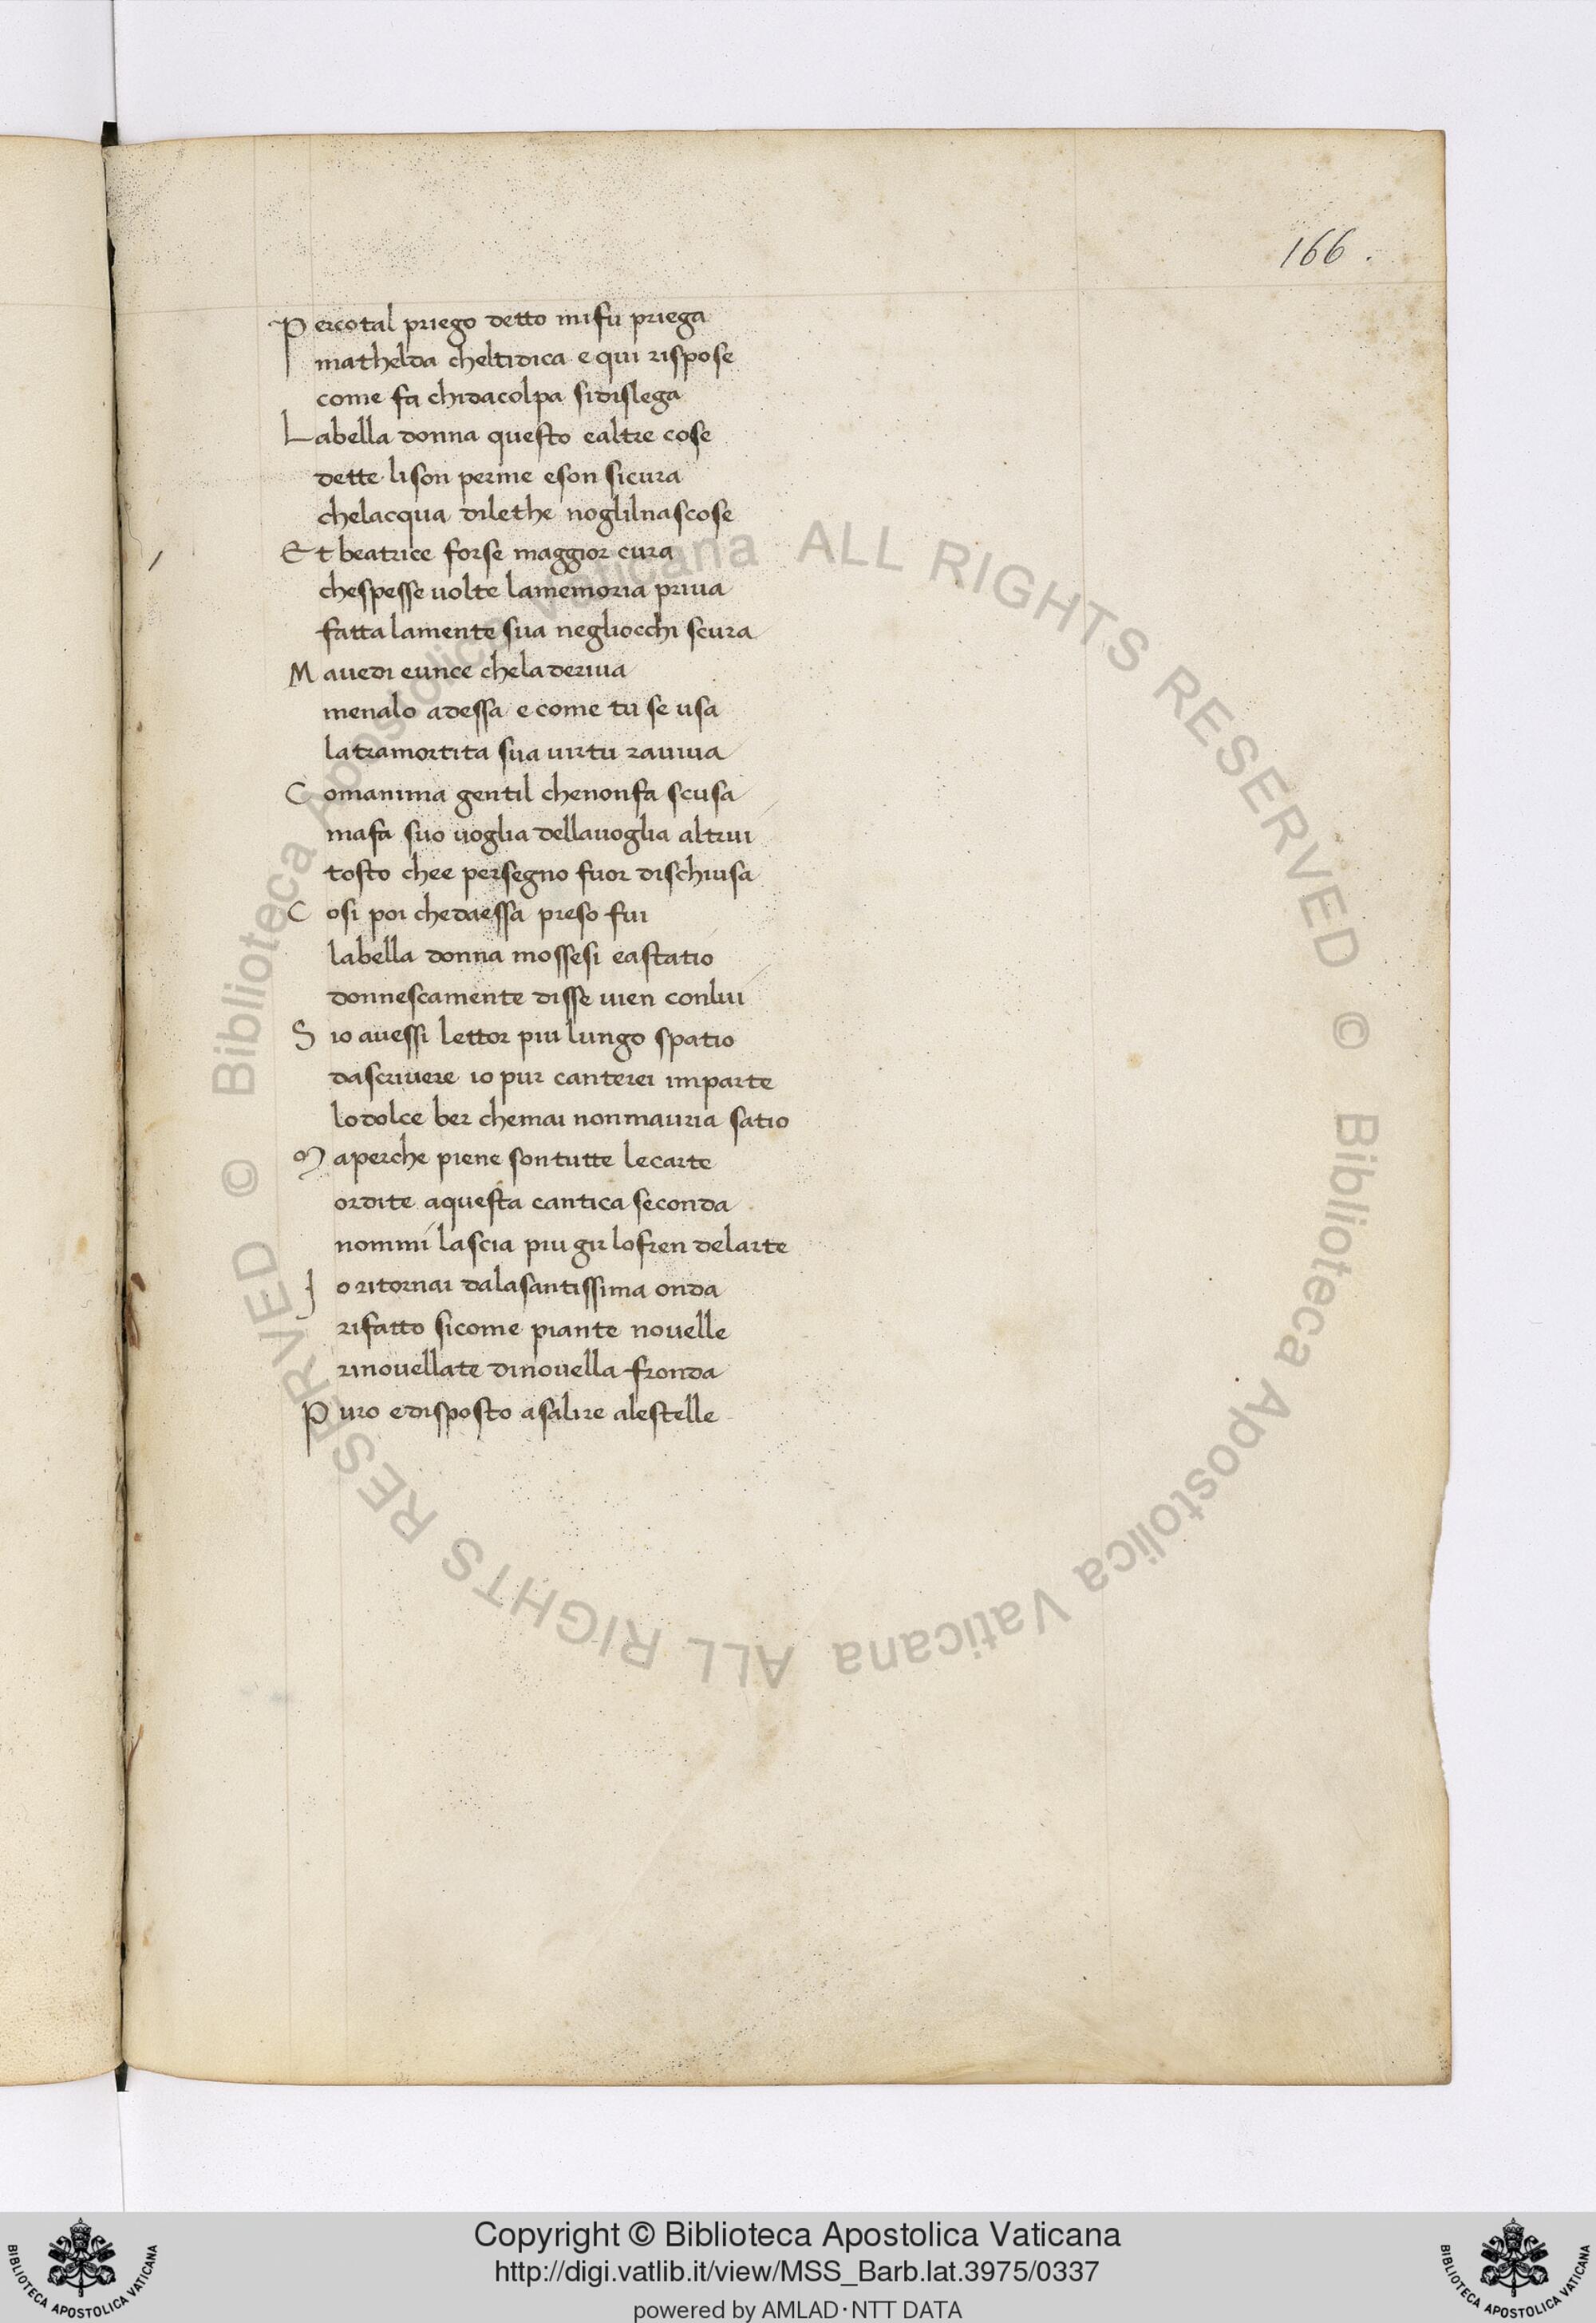 166.
Percotal priego detto mifu priega
mathelda cheltidica e qui rispose
come fa chidacolpa sidislega
Labella donna questo ealtre cose
dette lison perme eson sicura
chelacqua dilethe noglilnascose
Et beatrice forse maggior cura
chespesse uolte lamemoria priua
fatta lamente sua negliocchi scura
Mauedi eunce chela deriua
menalo adessa e come tu se usa
latramortita sua uirtu rauiua
Comanima gentil chenonfa scusa
mafa suo uoglia dellauoglia altrui
tosto chee persegno fuor dischiusa
Cosi poi chedaessa preso fui
labella donna mossesi eastatio
donnescamente disse uien conlui
Sio auessi lettor piu lungo spatio
dascriuere io pur canterei imparte
lodolce ber chemai nonmauria satio
Maperche piene sontutte lecarte
ordite aquesta cantica seconda
nommi lascia piu gir lofren delarte
Io ritornai dalasantissima onda
rifatto sicome piante nouelle
rinouellate dinouella fronda
Puro edisposto asalire alestelle
© Biblioteca Apostolica Vaticana ALL RIGHTS RESERVED © Biblioteca Apostolica Vaticana ALL RIGHTS RESERVED
Copyright © Biblioteca Apostolica Vaticana
http://digi.vatlib.it/view/MSS_Barb.lat.3975/0337
powered by AMLAD·NTT DATA
BIBLIOTECA APOSTOLICA VATICANA
BIBLIOTECA APOSTOLICA VATICANA